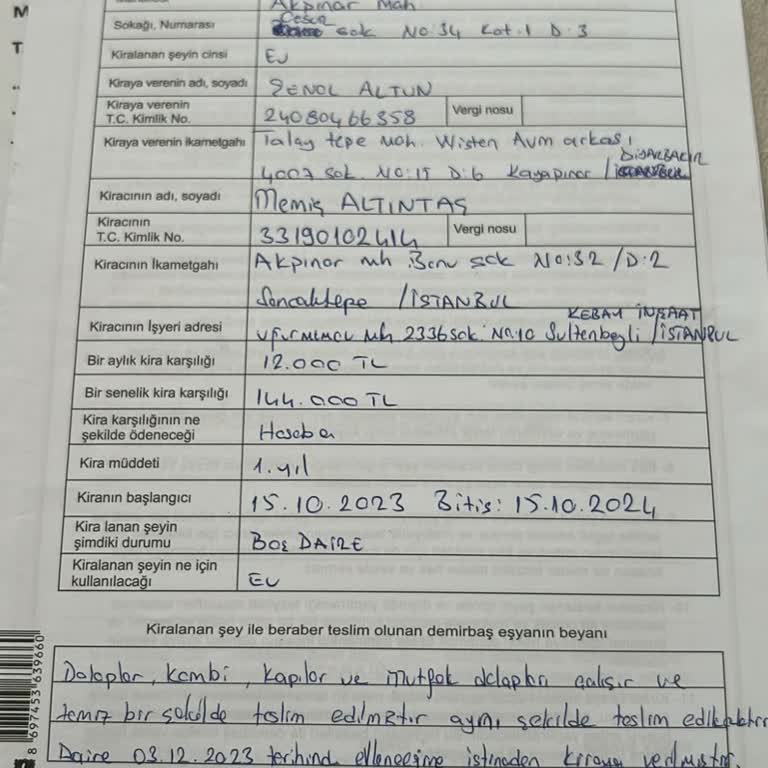 M
T
Akpınar Mah
Sokağı, Numarası Cesur sok No:34 Kat:1 D:3
Kiralanan şeyin cinsi EV
Kiraya verenin adı, soyadı ŞENOL ALTUN
Kiraya verenin T.C. Kimlik No. 24080466358 Vergi nosu
Kiraya verenin ikametgahı Talay tepe Mah. Wisten Avm arkası
DİYARBAKIR
4007 sok. No:15 D:6 Kayapınar /
Kiracının adı, soyadı Memiş ALTINTAŞ
Kiracının T.C. Kimlik No. 33190102414 Vergi nosu
Kiracının İkametgahı Akpınar mh Banu sok No:32 /D:2
Sancaktepe /İSTANBUL
KEBAN İNŞAAT
Kiracının İşyeri adresi Uğur MUMCU Mh 2336 sok. No:10 Sultanbeyli /İSTANBUL
Bir aylık kira karşılığı 12.000 TL
Bir senelik kira karşılığı 144.000 TL
Kira karşılığının ne şekilde ödeneceği Hesaba
Kira müddeti 1.yıl
Kiranın başlangıcı 15.10.2023 Bitiş: 15.10.2024
Kira lanan şeyin şimdiki durumu BOŞ DAİRE
Kiralanan şeyin ne için kullanılacağı EV
Kiralanan şey ile beraber teslim olunan demirbaş eşyanın beyanı
Dolaplar, kombi, kapılar ve mutfak dolapları çalışır ve
temiz bir şekilde teslim edilmiştir aynı şekilde teslim edilecektir
Daire 03.12.2023 tarihinde evleneceğine istinaden kiraya verilmiştir.
8 697453 639660